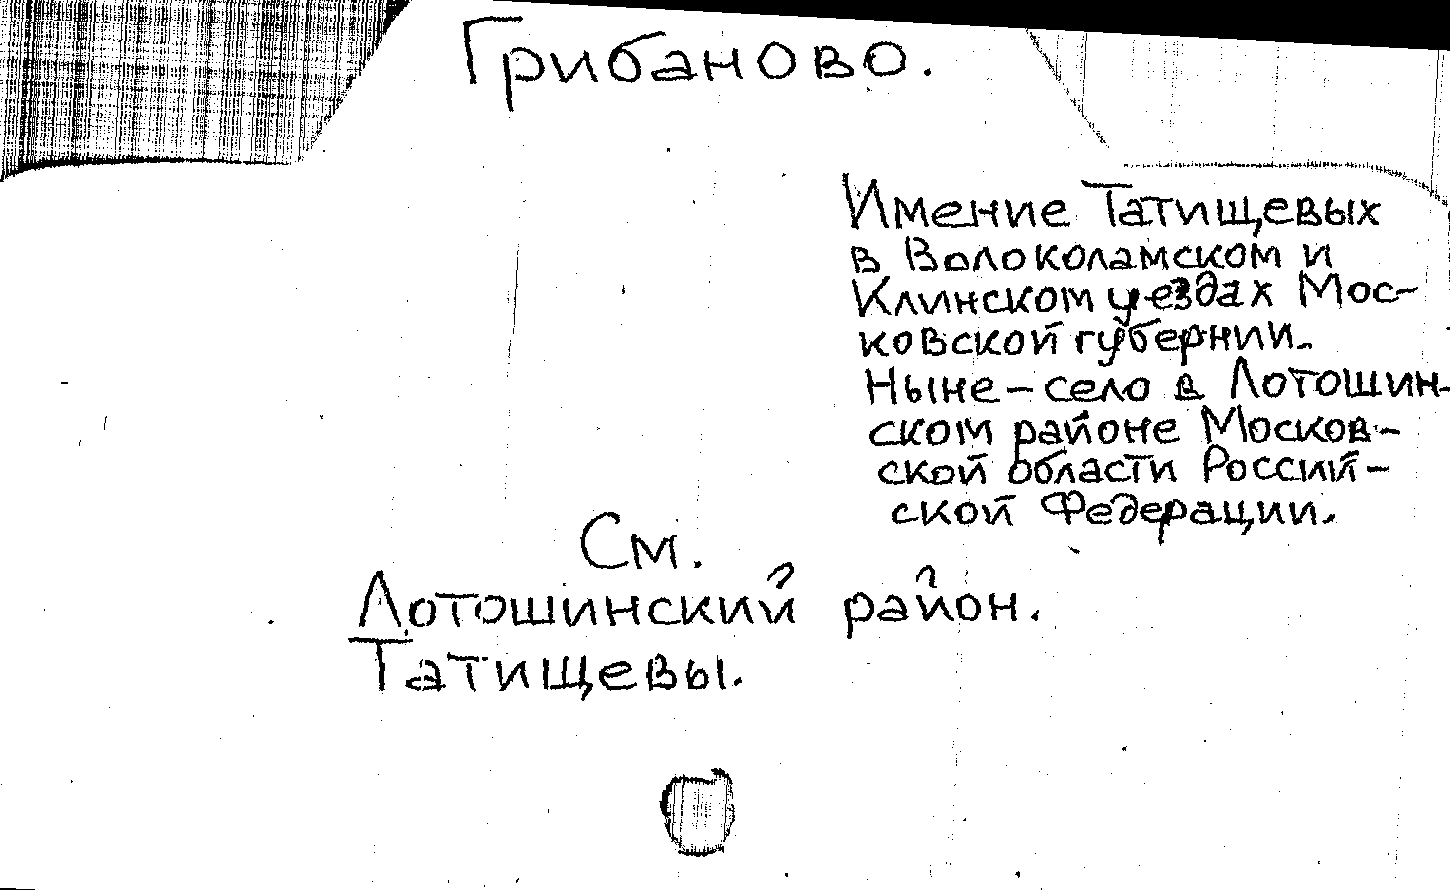 Грибаново.
Имение Татищевых
в Волоколамском и
Клинском уездах Мос-
ковской губернии.
Ныне - село в Лотошин-
ском районе Москов-
ской области Россий-
ской Федерации.
См.
Лотошинский район.
Татищевы.